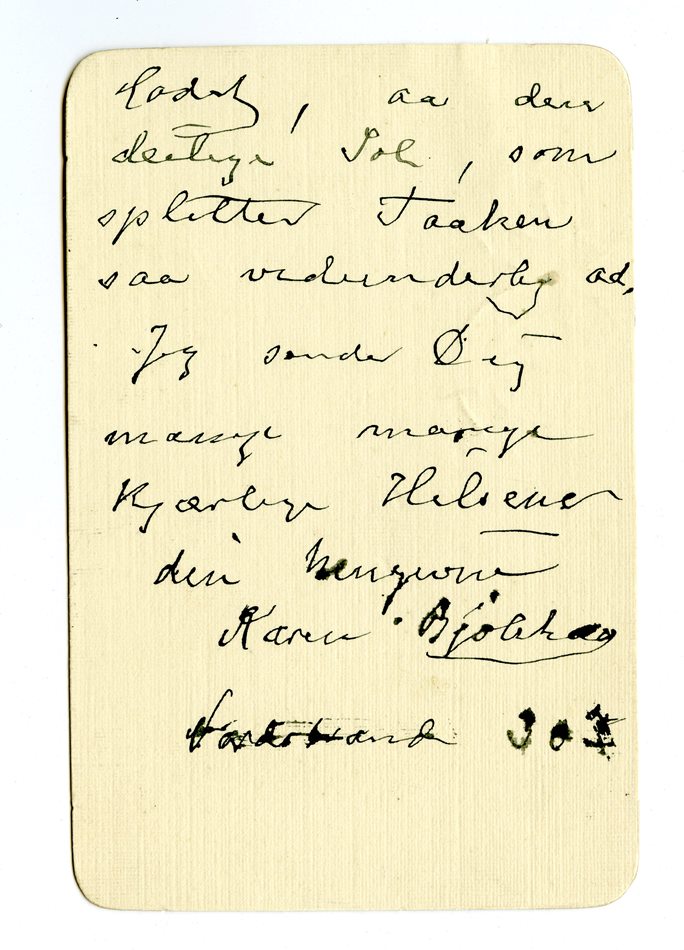 , aa den
deilige Sol, som
splitter Taaken
saa vidunderlig ad.
Jeg sender Dig
mange mange
Kjærlige Hilsener
din hengivne
Karen
30